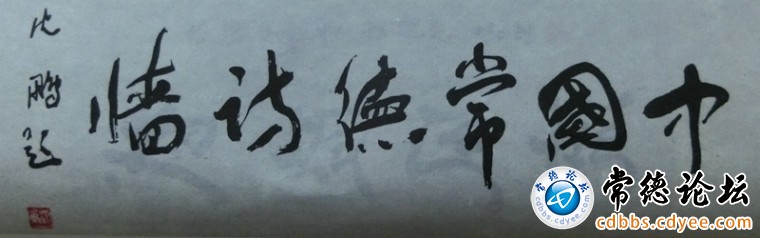 中國常德詩牆
沈鵬題
常德论坛
cdbbs.cdyee.com
常德论坛